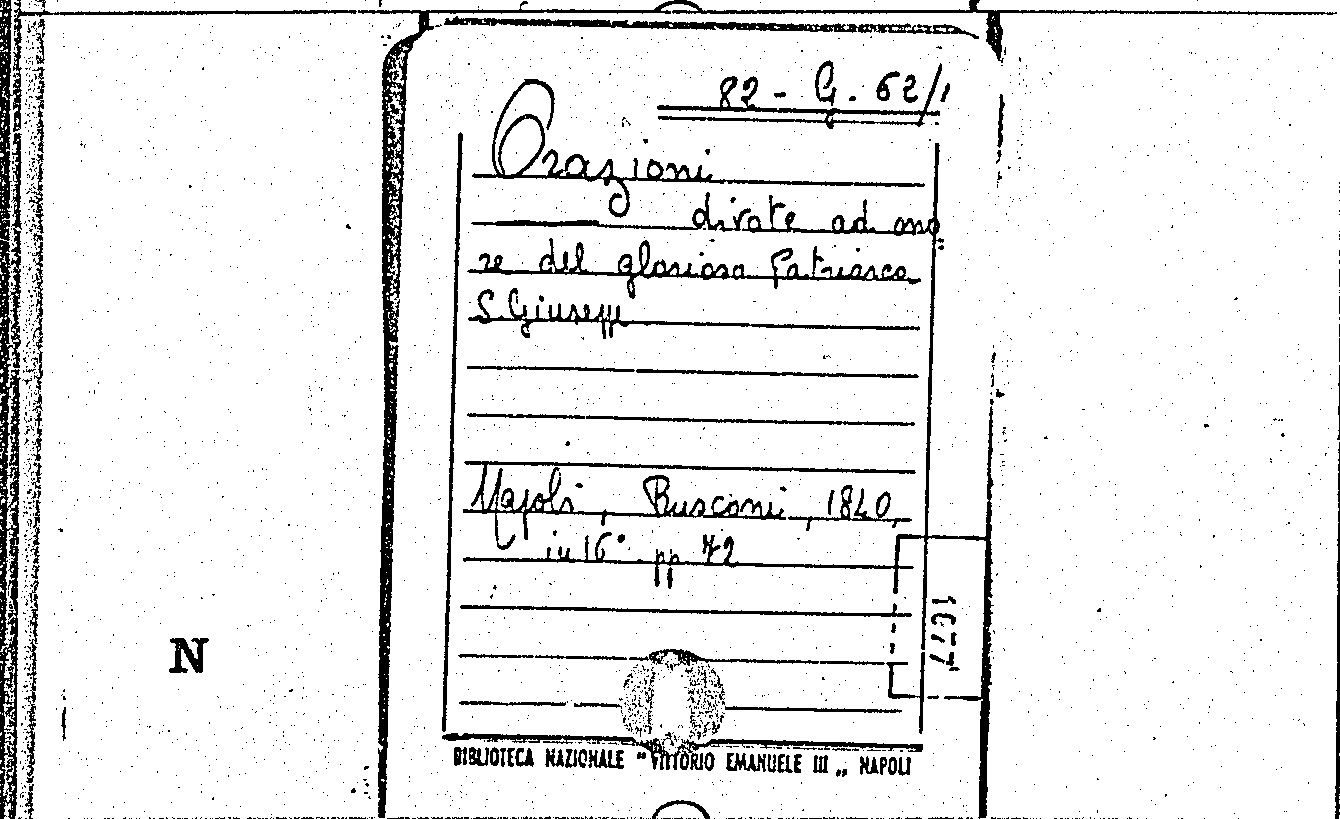 82 - G. 62/1
Orazioni
divote ad ono„
re del glorioso Patriarca
S. Giuseppe
Napoli, Rusconi, 1840,
in 16° pp 72
1677
N
BIBLIOTECA NAZIONALE " VITTORIO EMANUELE III „ NAPOLI